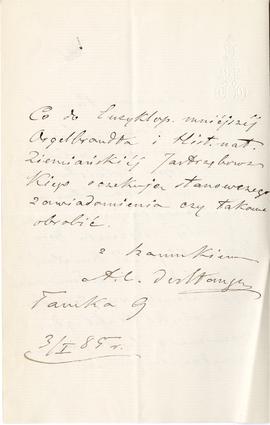 Co do Encyklop. mniejszéj
Orgelbrandta i Hist. nat.
Ziemiańskiéj Jastrzębows
kiego oczekuję stanowczego
zawiadomienia czy takowe
obrobić.
z szacunkiem
Tamka 9
3/I 85 r.